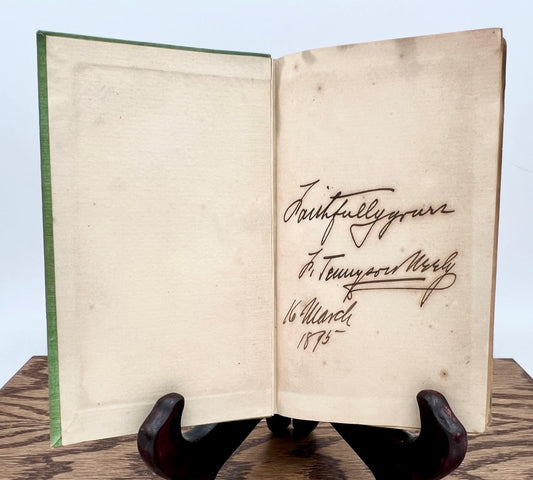 Faithfully yours
F. Tennyson Neely
16 March
1895